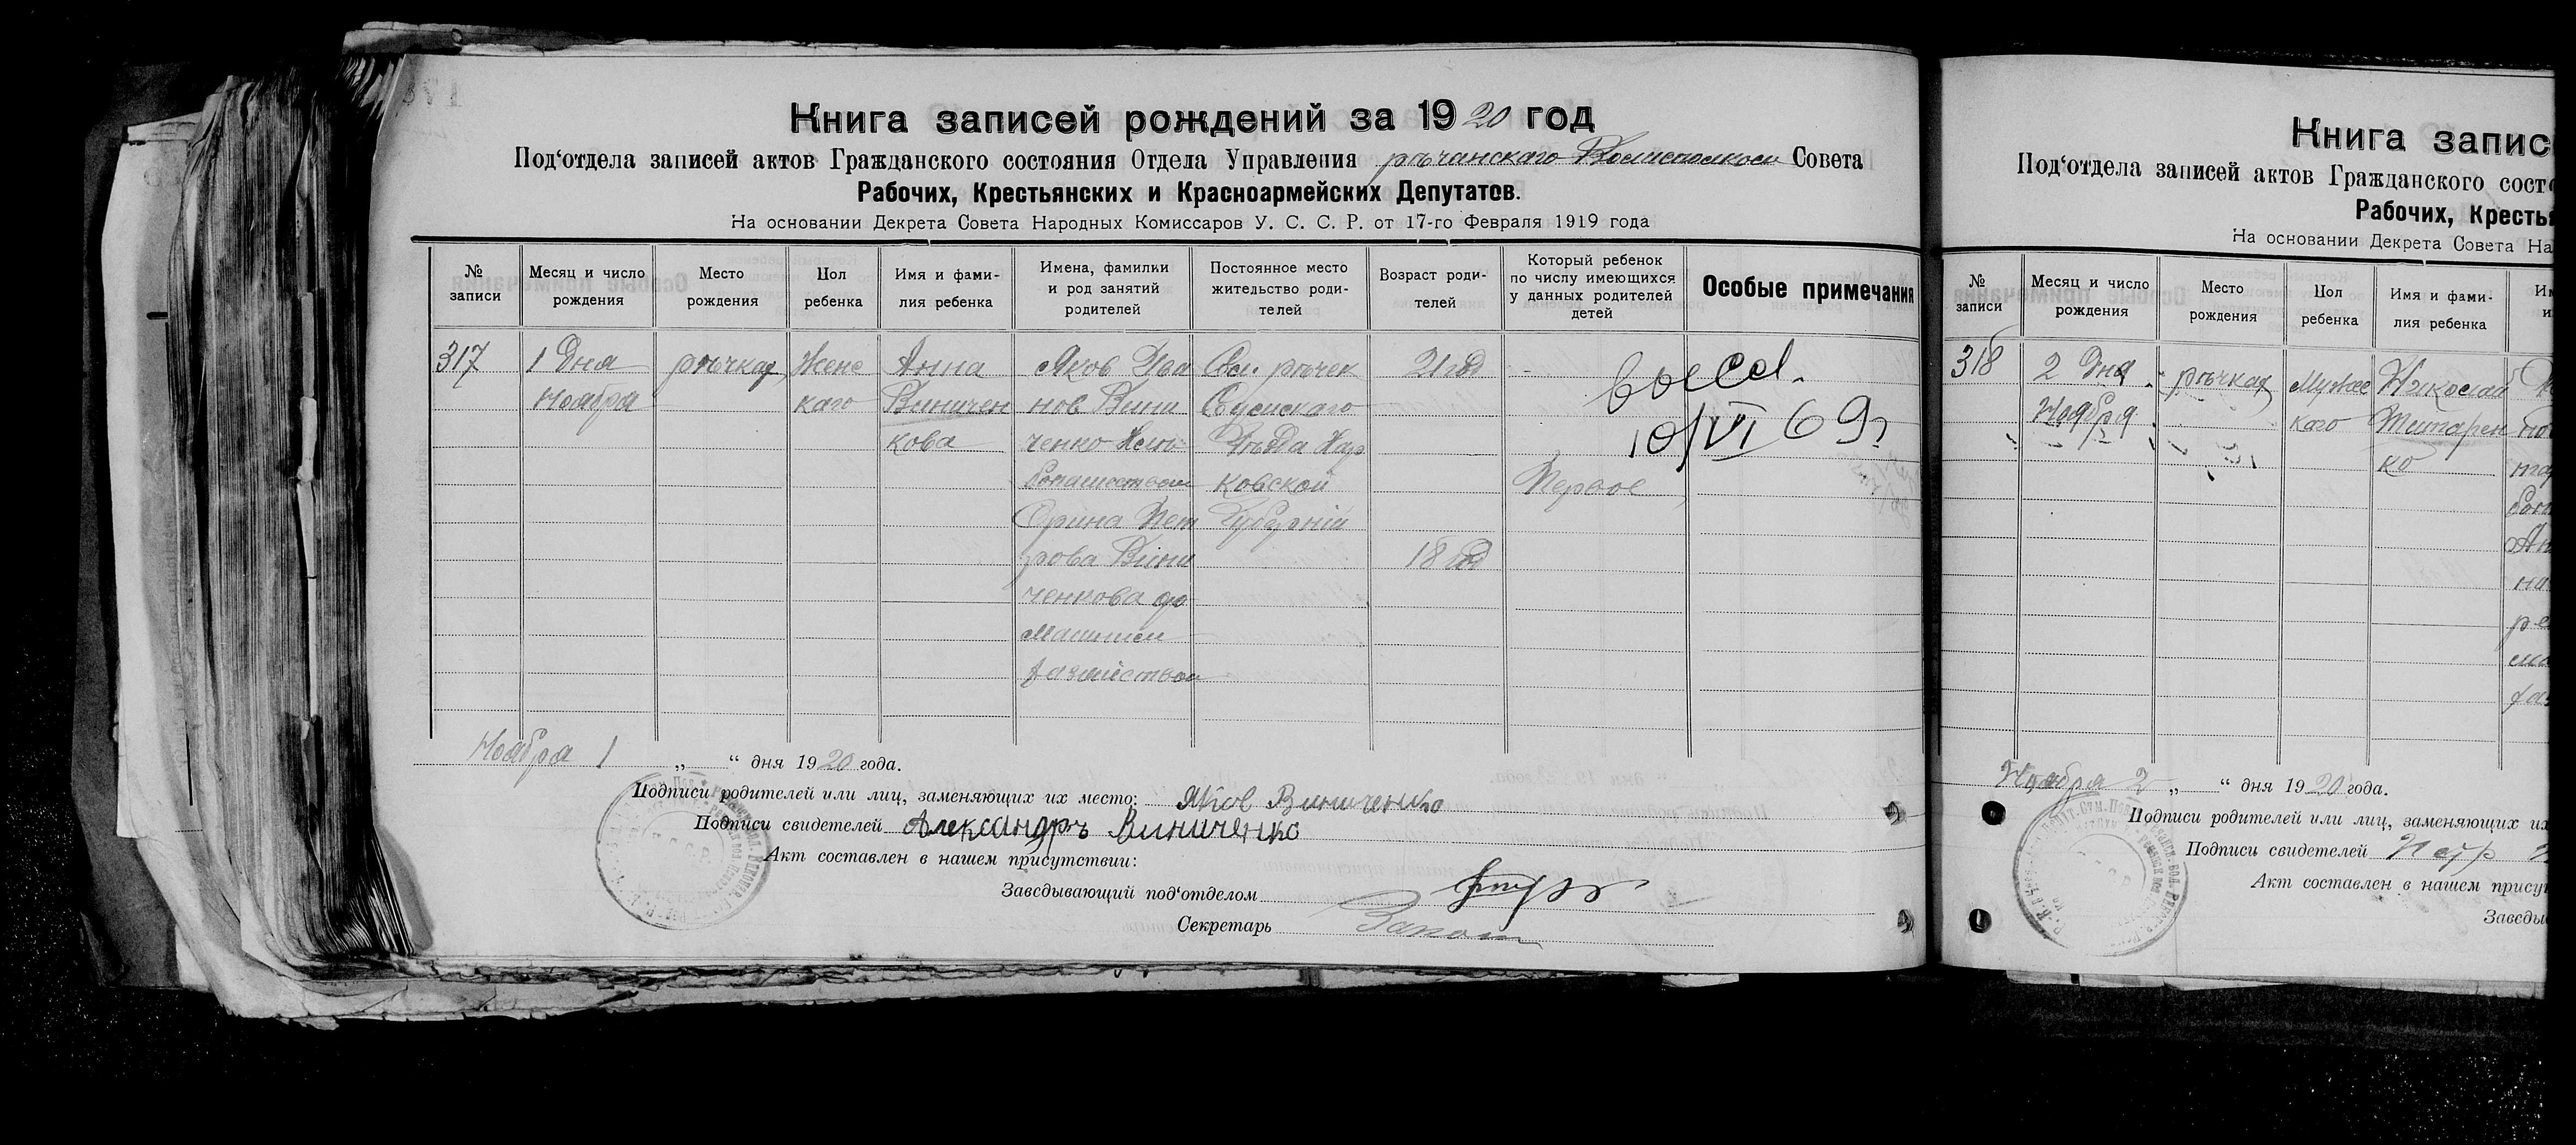 Книга записей рождений за 1920 год
Под‘отдела записей актов Гражданского состояния Отдела Управления рѣчанскаго Волисполком Совета
Рабочих, Крестьянских и Красноармейских Депутатов.
На основании Декрета Совета Народных Комиссаров У. С. С. Р. от 17-го Февраля 1919 года
№ записи
Месяц и число рождения
Место рождения
Пол ребенка
Имя и фами-
лия ребенка
Имена, фамилии
и род занятий
родителей
Постоянное место
жительство роди-
телей
Возраст роди-
телей
Который ребенок
по числу имеющихся
у данных родителей
детей
Особые примечания
317
1 Дня
Ноября
рѣчках
Женс
каго
Анна
Виничен
кова
Яков Ива
нов Вини
ченко Хлѣ-
бопашеством
Орина Пет
рова Вини
ченкова до
машним
хозяйством
Сел. рѣчек
Сумскаго
Уѣзда Хар
ковской
Губернии
21 год
18 год
Первое
10/VI 69г
Ноября 1 „ “ дня 1920 года.
Подписи родителей или лиц, заменяющих их место: Яков Виниченко
Подписи свидетелей Александръ Виниченко
Акт составлен в нашем присутствии:
Заведывающий под‘отделом
Секретарь
Книга запис
Под‘отдела записей актов Гражданского сост
Рабочих, Кресть
На основании Декрета Совета На
№ записи
Месяц и число
рождения
Место
рождения
Пол
ребенка
Имя и фами-
лия ребенка
318
2 Дня
Ноября
рѣчках
Мужс
каго
Николай
ко
Ноября 2 „ “ дня 1920 года.
Подписи родителей или лиц, заменяющих их
Подписи свидетелей Петр
Акт составлен в нашем присут
Заведы